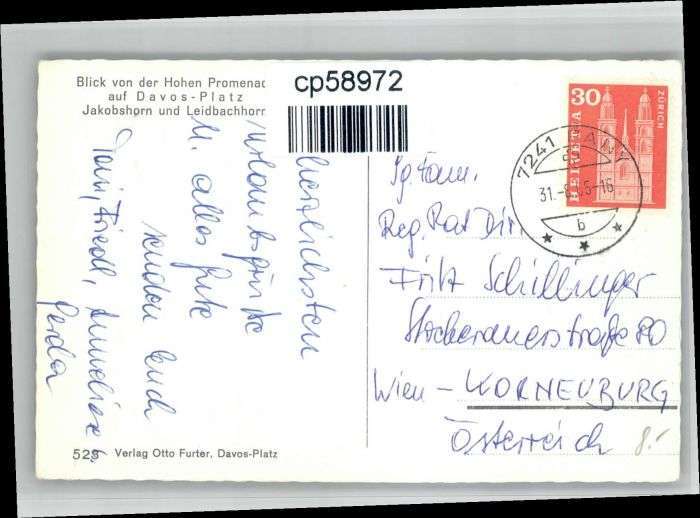 Blick von der Hohen Promenad
auf Davos-Platz
Jakobshorn und Leidbachhorn
cp58972
herzlichsten
Urlaubsgrüße
u. alles Gute
senden Euch
Friedl,
Gerda
529 Verlag Otto Furter, Davos-Platz
30
HELVETIA
ZÜRICH
7241
31.-8.65-16
b
Sg. Fam.
Reg. Rat Dir
Fritz Schillinger
Stockerauerstraße 80
Wien - KORNEUBURG
Österreich
8.-